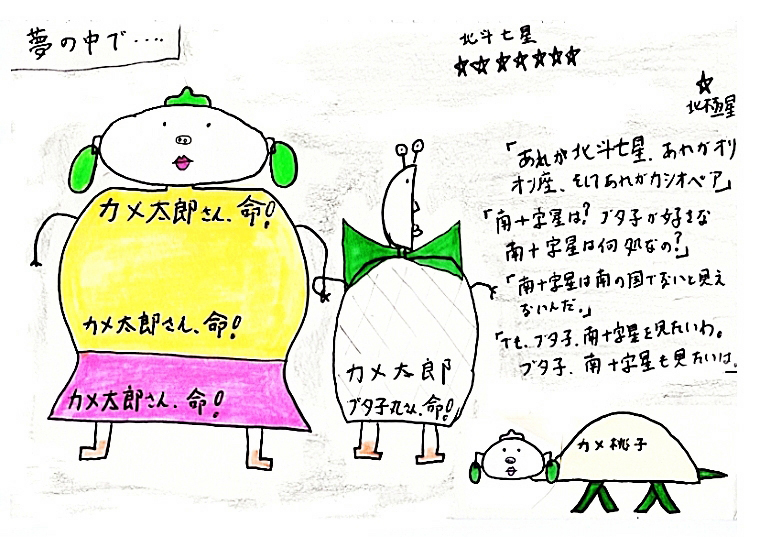 夢の中で‥‥
北斗七星
北極星
「あれが北斗七星、あれがオリ
オン座、そしてあれがカシオペア」
「南十字星は？ブタ子が好きな
南十字星は何処なの？」
「南十字星は南の国でないと見え
ないんだ。」
「でも、ブタ子、南十字星を見たいわ。
ブタ子、南十字星も見たいは。
カメ太郎さん、命！
カメ太郎さん、命！
カメ太郎さん、命！
カメ太郎
ブタ子丸さん、命！
カメ桃子